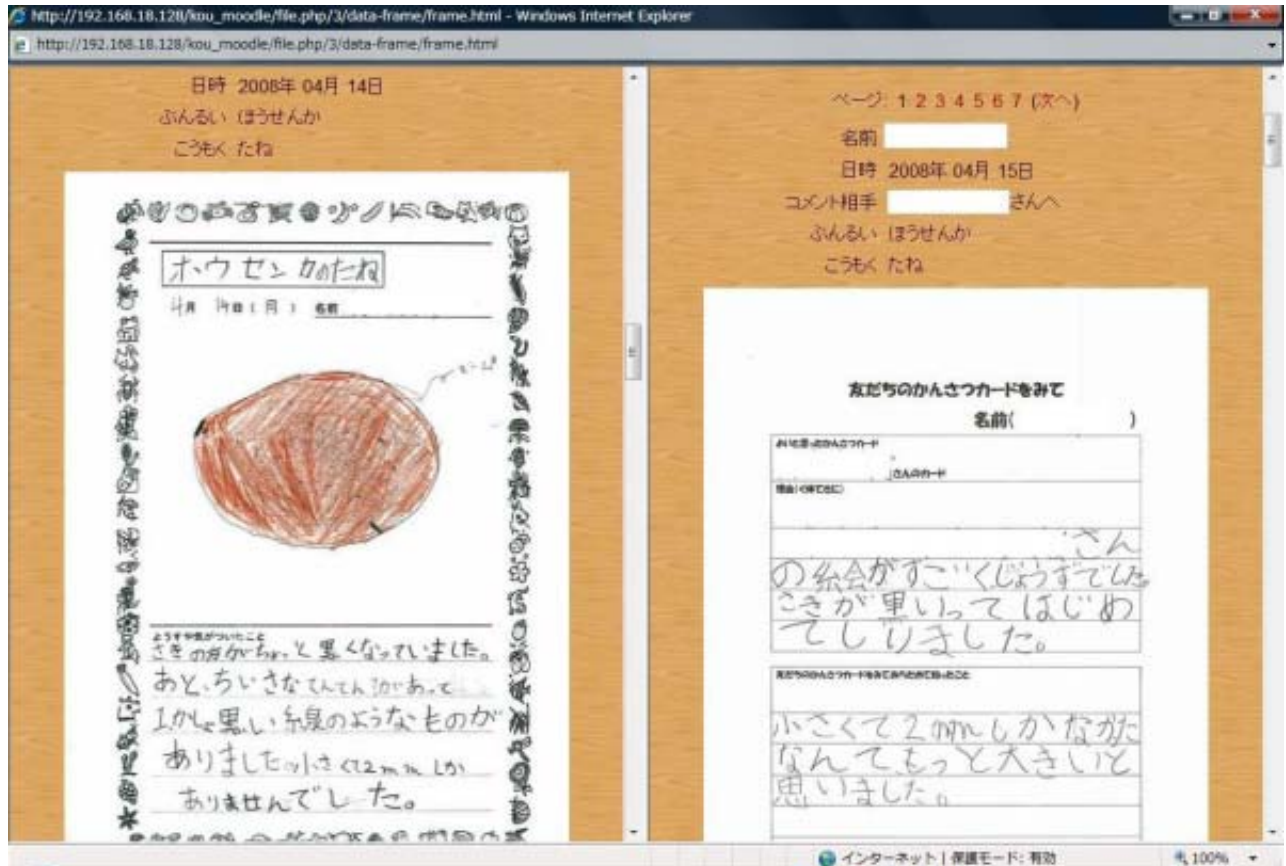 http://192.168.18.128/kou_moodle/file.php/3/data-frame/frame.html - Windows Internet Explorer
http://192.168.18.128/kou_moodle/file.php/3/data-frame/frame.html
日時 2008年 04月 14日
ぶんるい ほうせんか
こうもく たね
ホウセンカのたね
4月 14日(月) 名前
ようすや気がついたこと
さきの方がちょっと黒くなっていました。
あと、ちいさなてんてんがあって
1かしょ黒い線のようなものが
ありました。小さくて2mmしか
ありませんでした。
ページ: 1 2 3 4 5 6 7 (次へ)
名前
日時 2008年 04月 15日
コメント相手 さんへ
ぶんるい ほうせんか
こうもく たね
友だちのかんさつカードをみて
名前( )
よいと思ったかんさつカード
さんのカード
理由(ぐ体てきに)
さん
の絵がすごくじょうずでした。
さきが黒いってはじめ
てしりました。
友だちのかんさつカードをみてあらためて知ったこと
小さくて2mmしかなかた
なんてもっと大きいと
思いました。
インターネット | 保護モード: 有効
100%